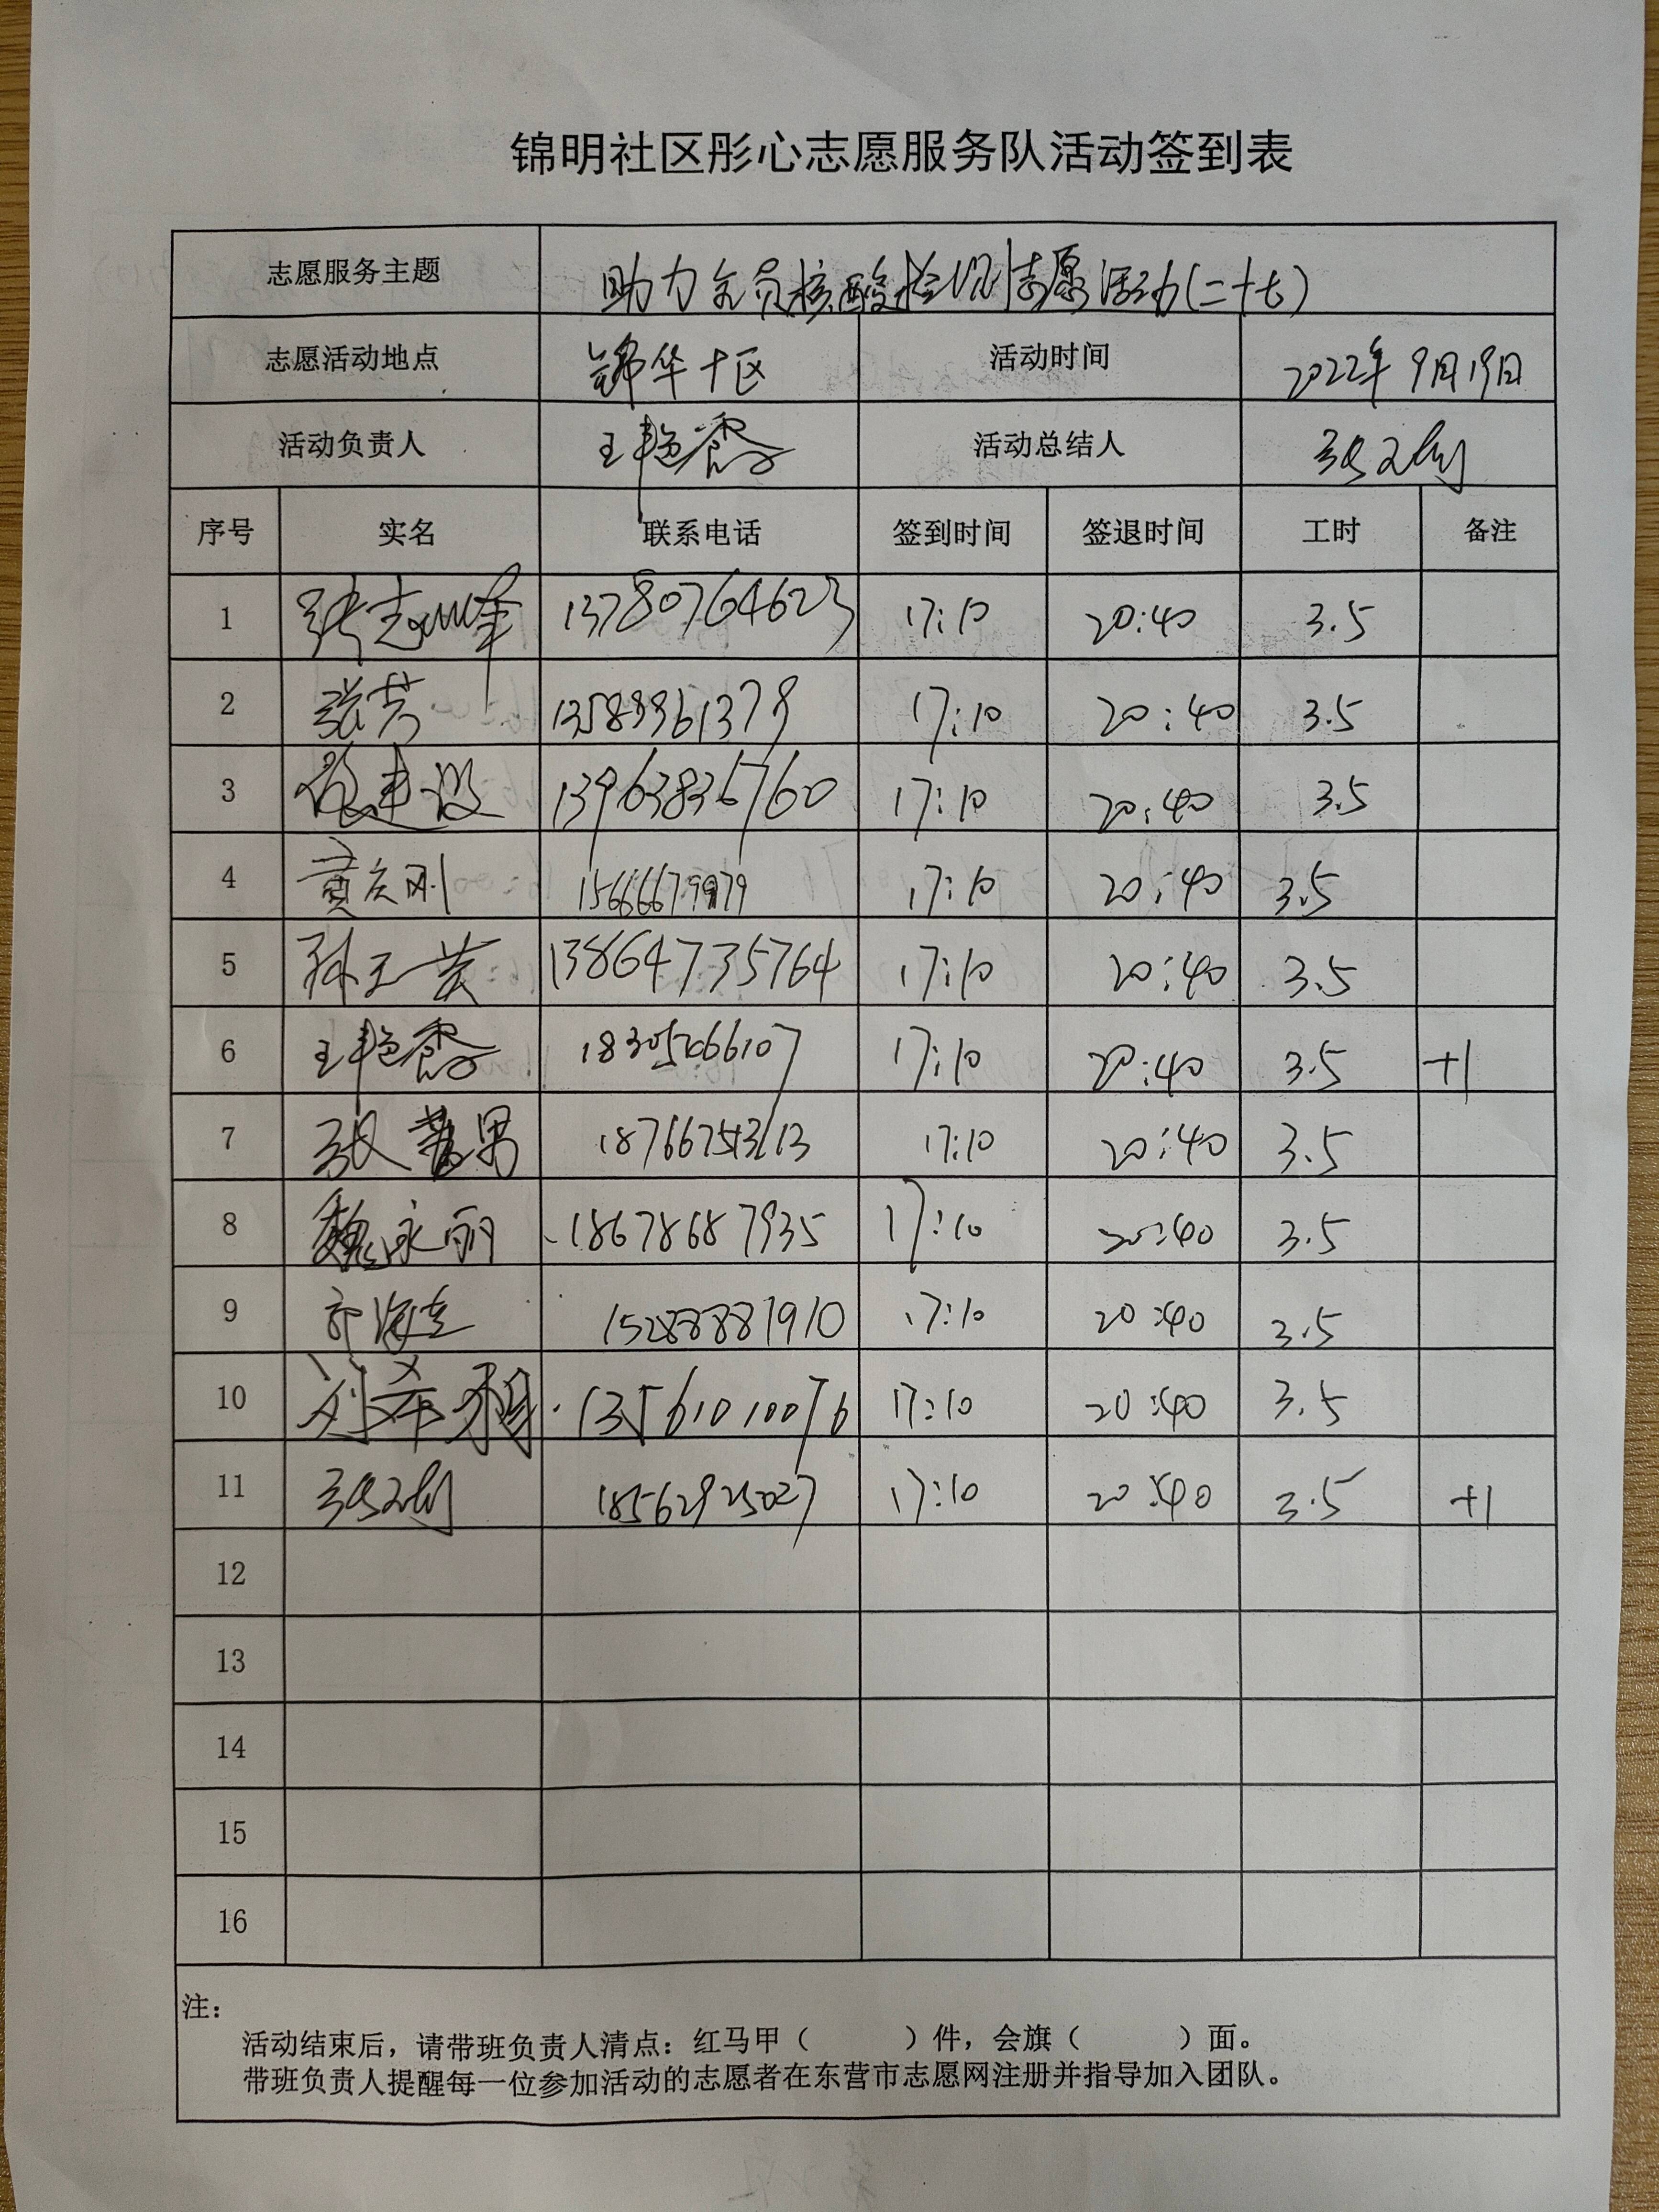 锦明社区彤心志愿服务队活动签到表
志愿服务主题 助力全员核酸检测志愿活动(二十七)
志愿活动地点 锦华十区 活动时间 2022年9月19日
活动负责人 王艳霞 活动总结人
序号 实名 联系电话 签到时间 签退时间 工时 备注
1 张志峰 13780764623 17:10 20:40 3.5
2 张芳 13589961379 17:10 20:40 3.5
3 建设 13963836760 17:10 20:40 3.5
4 黄庆刚 15666679979 17:10 20:40 3.5
5 孙玉芸 13864735764 17:10 20:40 3.5
6 王艳霞 18305066107 17:10 20:40 3.5 +1
7 张 男 17:10 20:40 3.5
8 魏永丽 18678687935 17:10 20:40 3.5
9 海 15288881910 17:10 20:40 3.5
10 刘希翔 13561010076 17:10 20:40 3.5
11 18562925027 17:10 20:40 3.5 +1
12
13
14
15
16
注：
活动结束后，请带班负责人清点：红马甲（ ）件，会旗（ ）面。
带班负责人提醒每一位参加活动的志愿者在东营市志愿网注册并指导加入团队。